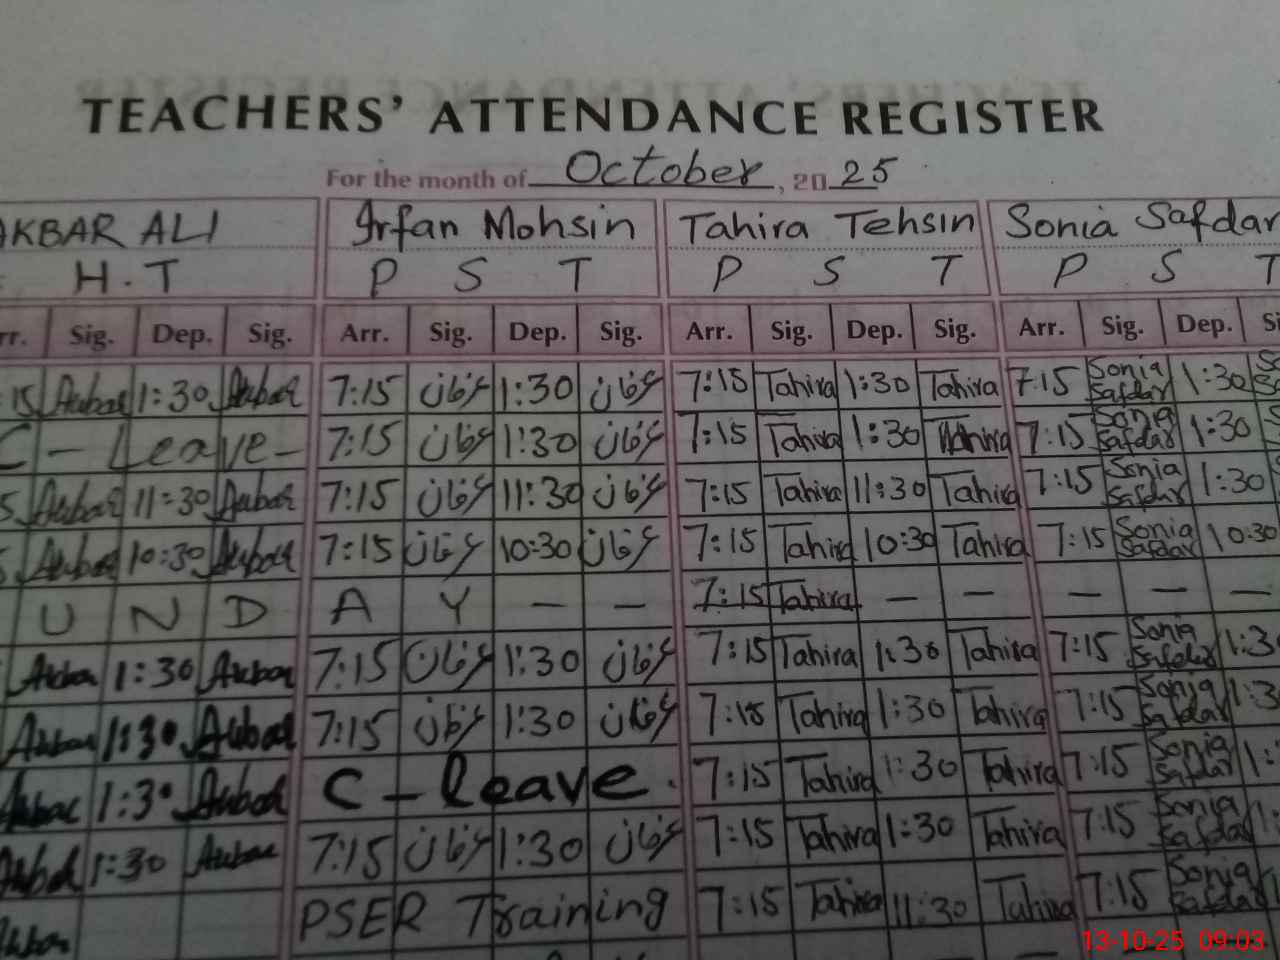 TEACHERS' ATTENDANCE REGISTER
For the month of October, 2025
AKBAR ALI Irfan Mohsin Tahira Tehsin Sonia Safdar
H.T P S T P S T P S T
Arr. Sig. Dep. Sig. Arr. Sig. Dep. Sig. Arr. Sig. Dep. Sig. Arr. Sig. Dep. Si
15 Akbar 1:30 Akbar 7:15 عرفان 1:30 عرفان 7:15 Tahira 1:30 Tahira 7:15 Sonia Safdar 1:30
C - Leave - 7:15 عرفان 1:30 عرفان 7:15 Tahira 1:30 Tahira 7:15 Sonia Safdar 1:30
5 Akbar 11:30 Akbar 7:15 عرفان 11:30 عرفان 7:15 Tahira 11:30 Tahira 7:15 Sonia Safdar 1:30
Akbar 10:30 Akbar 7:15 عرفان 10:30 عرفان 7:15 Tahira 10:30 Tahira 7:15 Sonia Safdar 10:30
U N D A Y — — 7:15 Tahira — — — — —
Akbar 1:30 Akbar 7:15 عرفان 1:30 عرفان 7:15 Tahira 1:30 Tahira 7:15 Sonia Safdar 1:3
Akbar 1:30 Akbar 7:15 عرفان 1:30 عرفان 7:15 Tahira 1:30 Tahira 7:15 Sonia Safdar 1:3
Akbar 1:30 Akbar C - leave. 7:15 Tahira 1:30 Tahira 7:15 Sonia Safdar 1:
Akbar 1:30 Akbar 7:15 عرفان 1:30 عرفان 7:15 Tahira 1:30 Tahira 7:15 Sonia Safdar 1:
Akbar PSER Training 7:15 Tahira 11:30 Tahira 7:15 Sonia Safdar
13-10-25 09:03